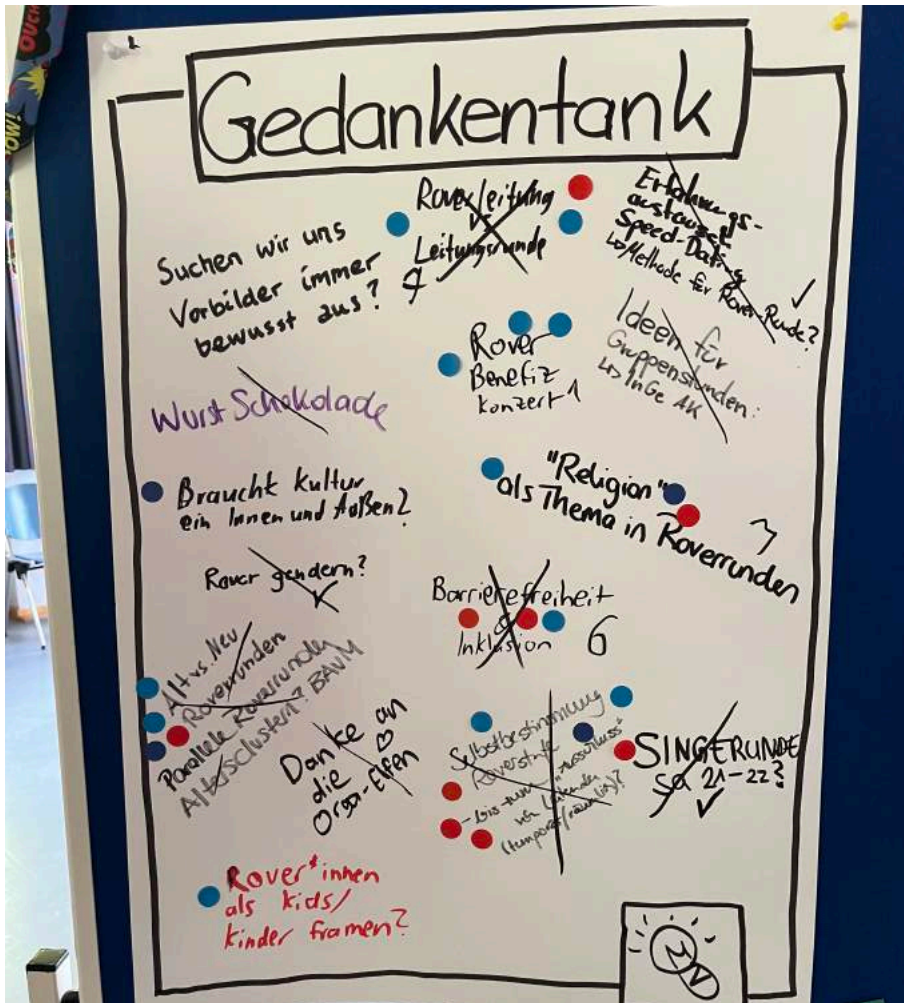 OUCH
OW!
Gedankentank
Roverleitung
Leitungsrunde
Suchen wir uns
Vorbilder immer
bewusst aus?
Erfahrungs-
austausch
Speed-Dating
↳ Methode für Rover-Runde?
Rover
Benefiz
Konzert
Ideen für
Gruppenstunden:
↳ InGe AK
Wurst Schokolade
Braucht Kultur
ein Innen und Außen?
"Religion"
als Thema in Roverrunden
Rover gendern?
Barrierefreiheit
&
Inklusion 6
Alt vs. Neu
Roverrunden
Parallele Roverrunden
Altersclustern? BAVM
Danke an
die
Orga-Elfen
Selbstbestimmung
Roverstufe
von Leitenden
SINGERUNDE
Sa 21-22?
Rover*innen
als kids/
kinder framen?